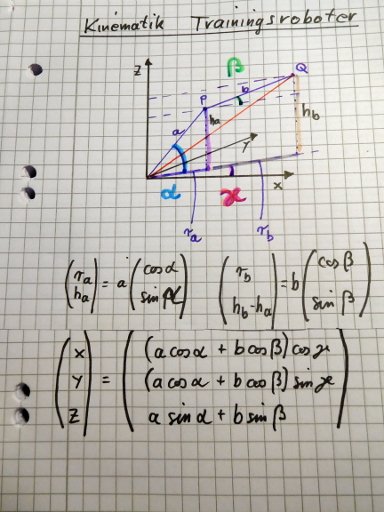 Kinematik Trainingsroboter
z
β
Q
P
b
a
ha
hb
y
α
ϰ
x
ra
rb
(ra ha) = a (cos α sin α) (rb hb-ha) = b (cos β sin β)
x (a cos α + b cos β) cos ϰ
y = (a cos α + b cos β) sin ϰ
z a sin α + b sin β